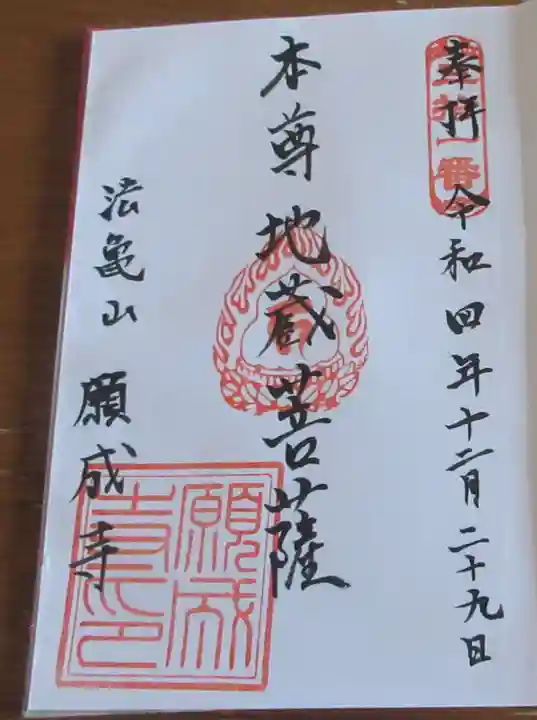 奉拝 令和四年十二月二十九日
本尊 地蔵菩薩
法亀山 願成寺
願成寺印